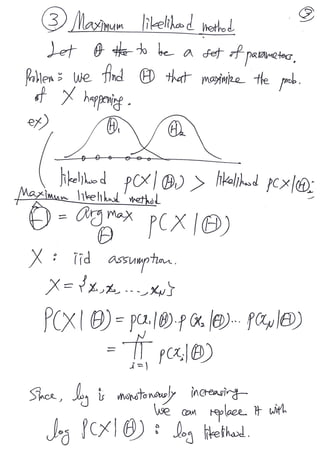 ③ Maximum likelihood method
Let Θ to be a set of parameters.
Problem: We find Θ that maximize the prob.
of X happening.
ex)
Θ₁ Θ₂
likelihood p(X|Θ₁) > likelihood p(X|Θ₂)
Maximum likelihood method
Θ̂ = argmax p(X|Θ)
Θ
X : iid assumption.
X = {x₁, x₂, ..., x_N}
P(X|Θ) = p(x₁|Θ)·p(x₂|Θ)... p(x_N|Θ)
= ∏_{i=1}^{N} p(x_i|Θ)
Since, log is monotonously increasing
We can replace it with
log P(X|Θ) : log likelihood.